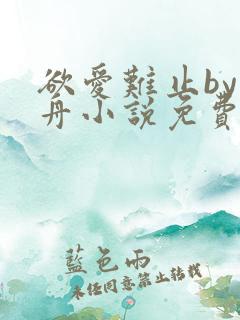 欲愛難止by
舟小說免費
藍色雨
未经同意禁止转载